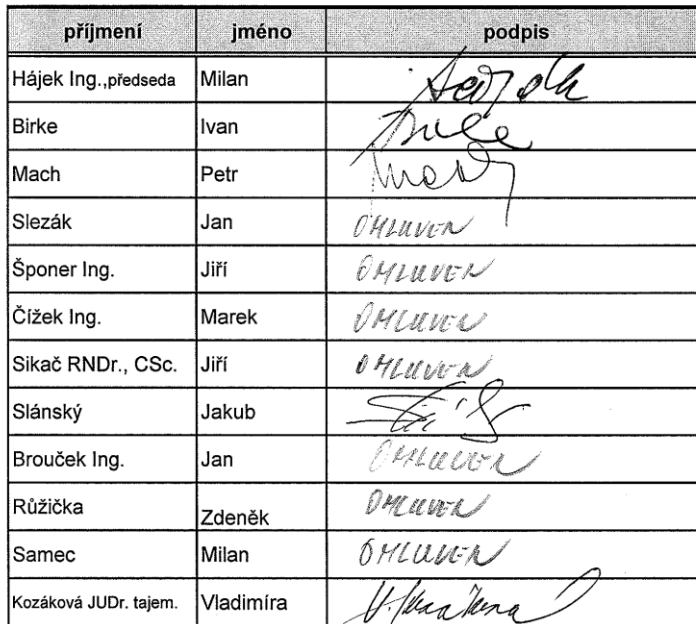 příjmení jméno podpis
Hájek Ing.,předseda Milan
Birke Ivan
Mach Petr
Slezák Jan OMLUVEN
Šponer Ing. Jiří OMLUVEN
Čížek Ing. Marek OMLUVEN
Sikač RNDr., CSc. Jiří OMLUVEN
Slánský Jakub
Brouček Ing. Jan OMLUVEN
Růžička Zdeněk OMLUVEN
Samec Milan OMLUVEN
Kozáková JUDr. tajem. Vladimíra